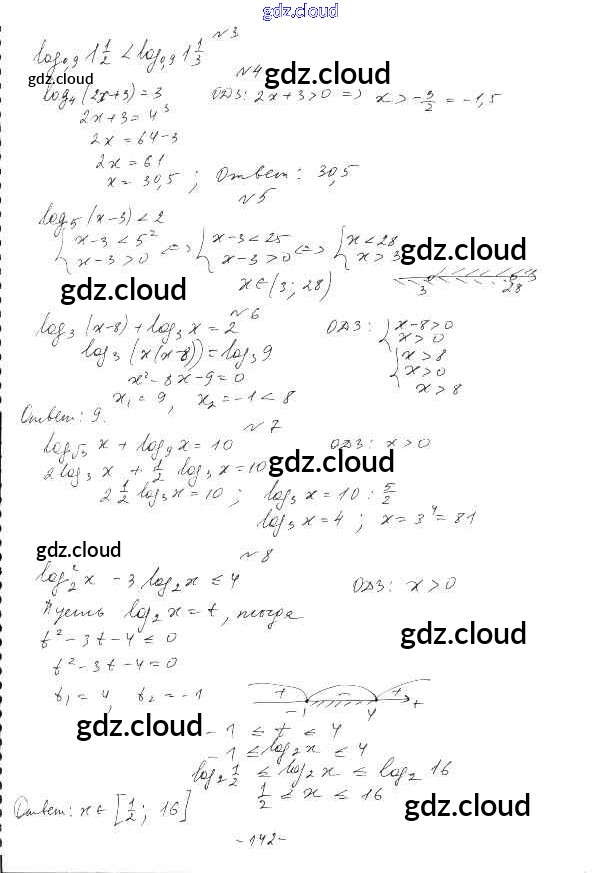 gdz.cloud
№3
log₀,₉ 1 1/2 < log₀,₉ 1 1/3
gdz.cloud
№4 gdz.cloud
log₄(2x+3) = 3 ОДЗ: 2x+3>0 => x > -3/2 = -1,5
2x+3 = 4³
2x = 64-3
2x = 61
x = 30,5 ; Ответ: 30,5
№5
log₅(x-3) < 2
{x-3 < 5² <=> {x-3 < 25 <=> {x < 28 gdz.cloud
x-3 > 0 x-3 > 0 x > 3
3 28
gdz.cloud x∈(3; 28)
№6
log₃(x-8) + log₃x = 2 ОДЗ: {x-8>0
x>0
log₃(x(x-8)) = log₃9 {x>8
x>0
x²-8x-9=0
x₁ = 9, x₂ = -1 < 8 x>8
Ответ: 9.
№7
log√₃ x + log₉x = 10 ОДЗ: x>0
2log₃ x + 1/2 log₃x = 10 gdz.cloud
2 1/2 log₃x = 10 ; log₃x = 10 : 5/2
log₃x = 4 ; x = 3⁴ = 81
gdz.cloud
№8
log₂²x - 3 log₂x ≤ 4 ОДЗ: x>0
Пусть log₂x = t, тогда
t²-3t-4 ≤ 0 gdz.cloud
t²-3t-4=0
t₁ = 4, t₂ = -1 + - + t
-1 4
gdz.cloud -1 ≤ t ≤ 4
-1 ≤ log₂x ≤ 4
log₂ 1/2 ≤ log₂x ≤ log₂ 16
1/2 ≤ x ≤ 16
Ответ: x∈[1/2; 16] gdz.cloud
-142-